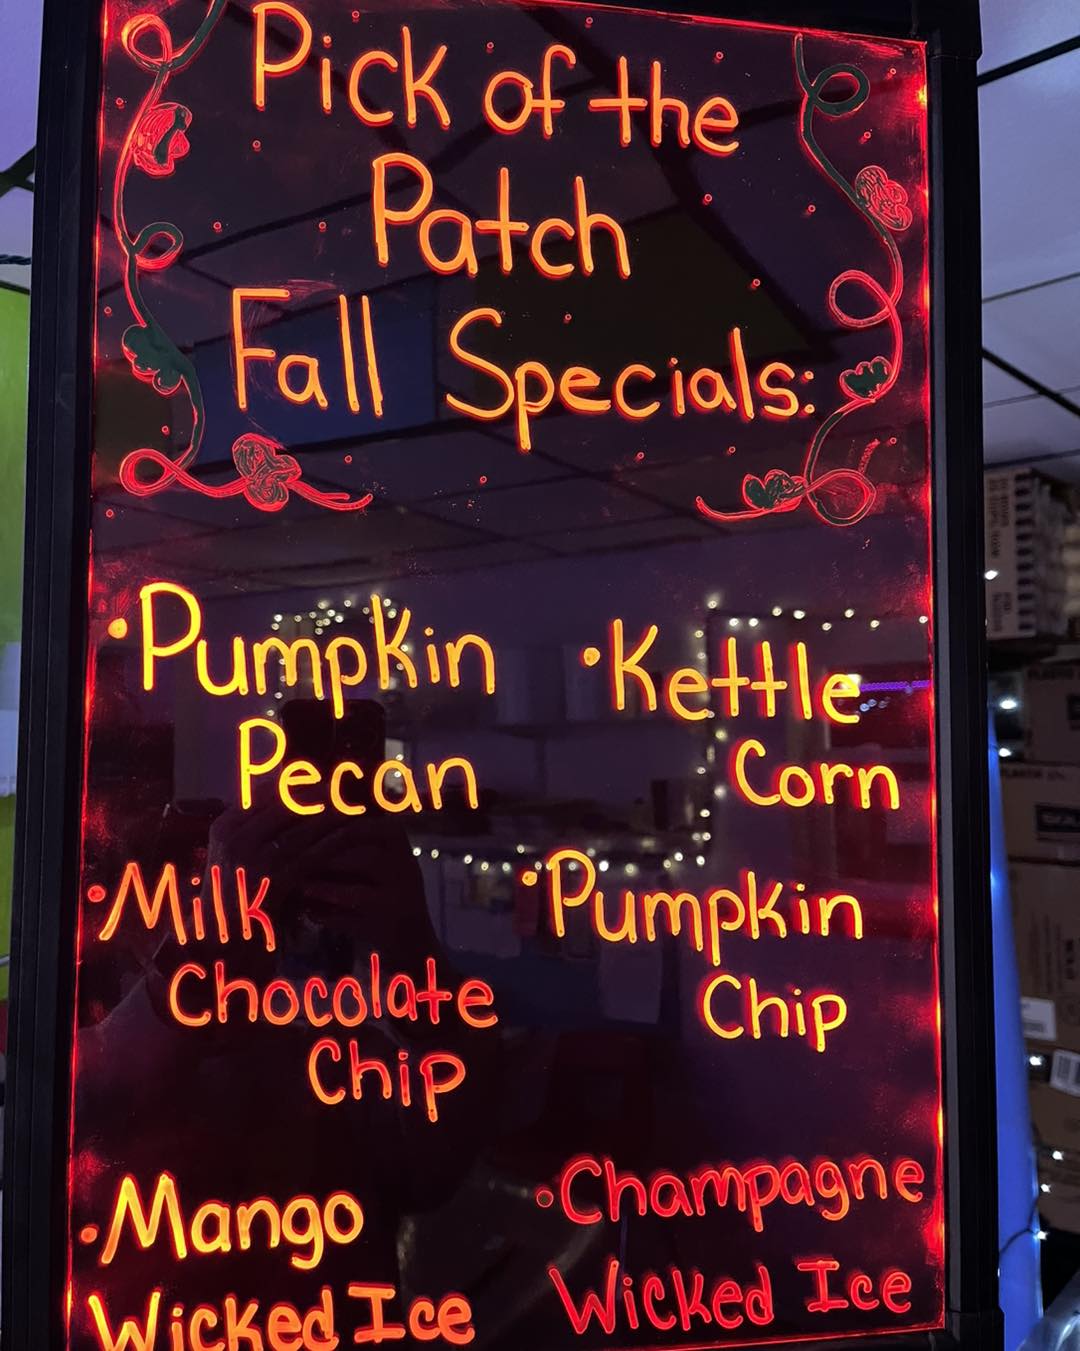 Pick of the
Patch
Fall Specials:
•Pumpkin
Pecan
•Kettle
Corn
•Milk
Chocolate
Chip
•Pumpkin
Chip
•Mango
Wicked Ice
•Champagne
Wicked Ice